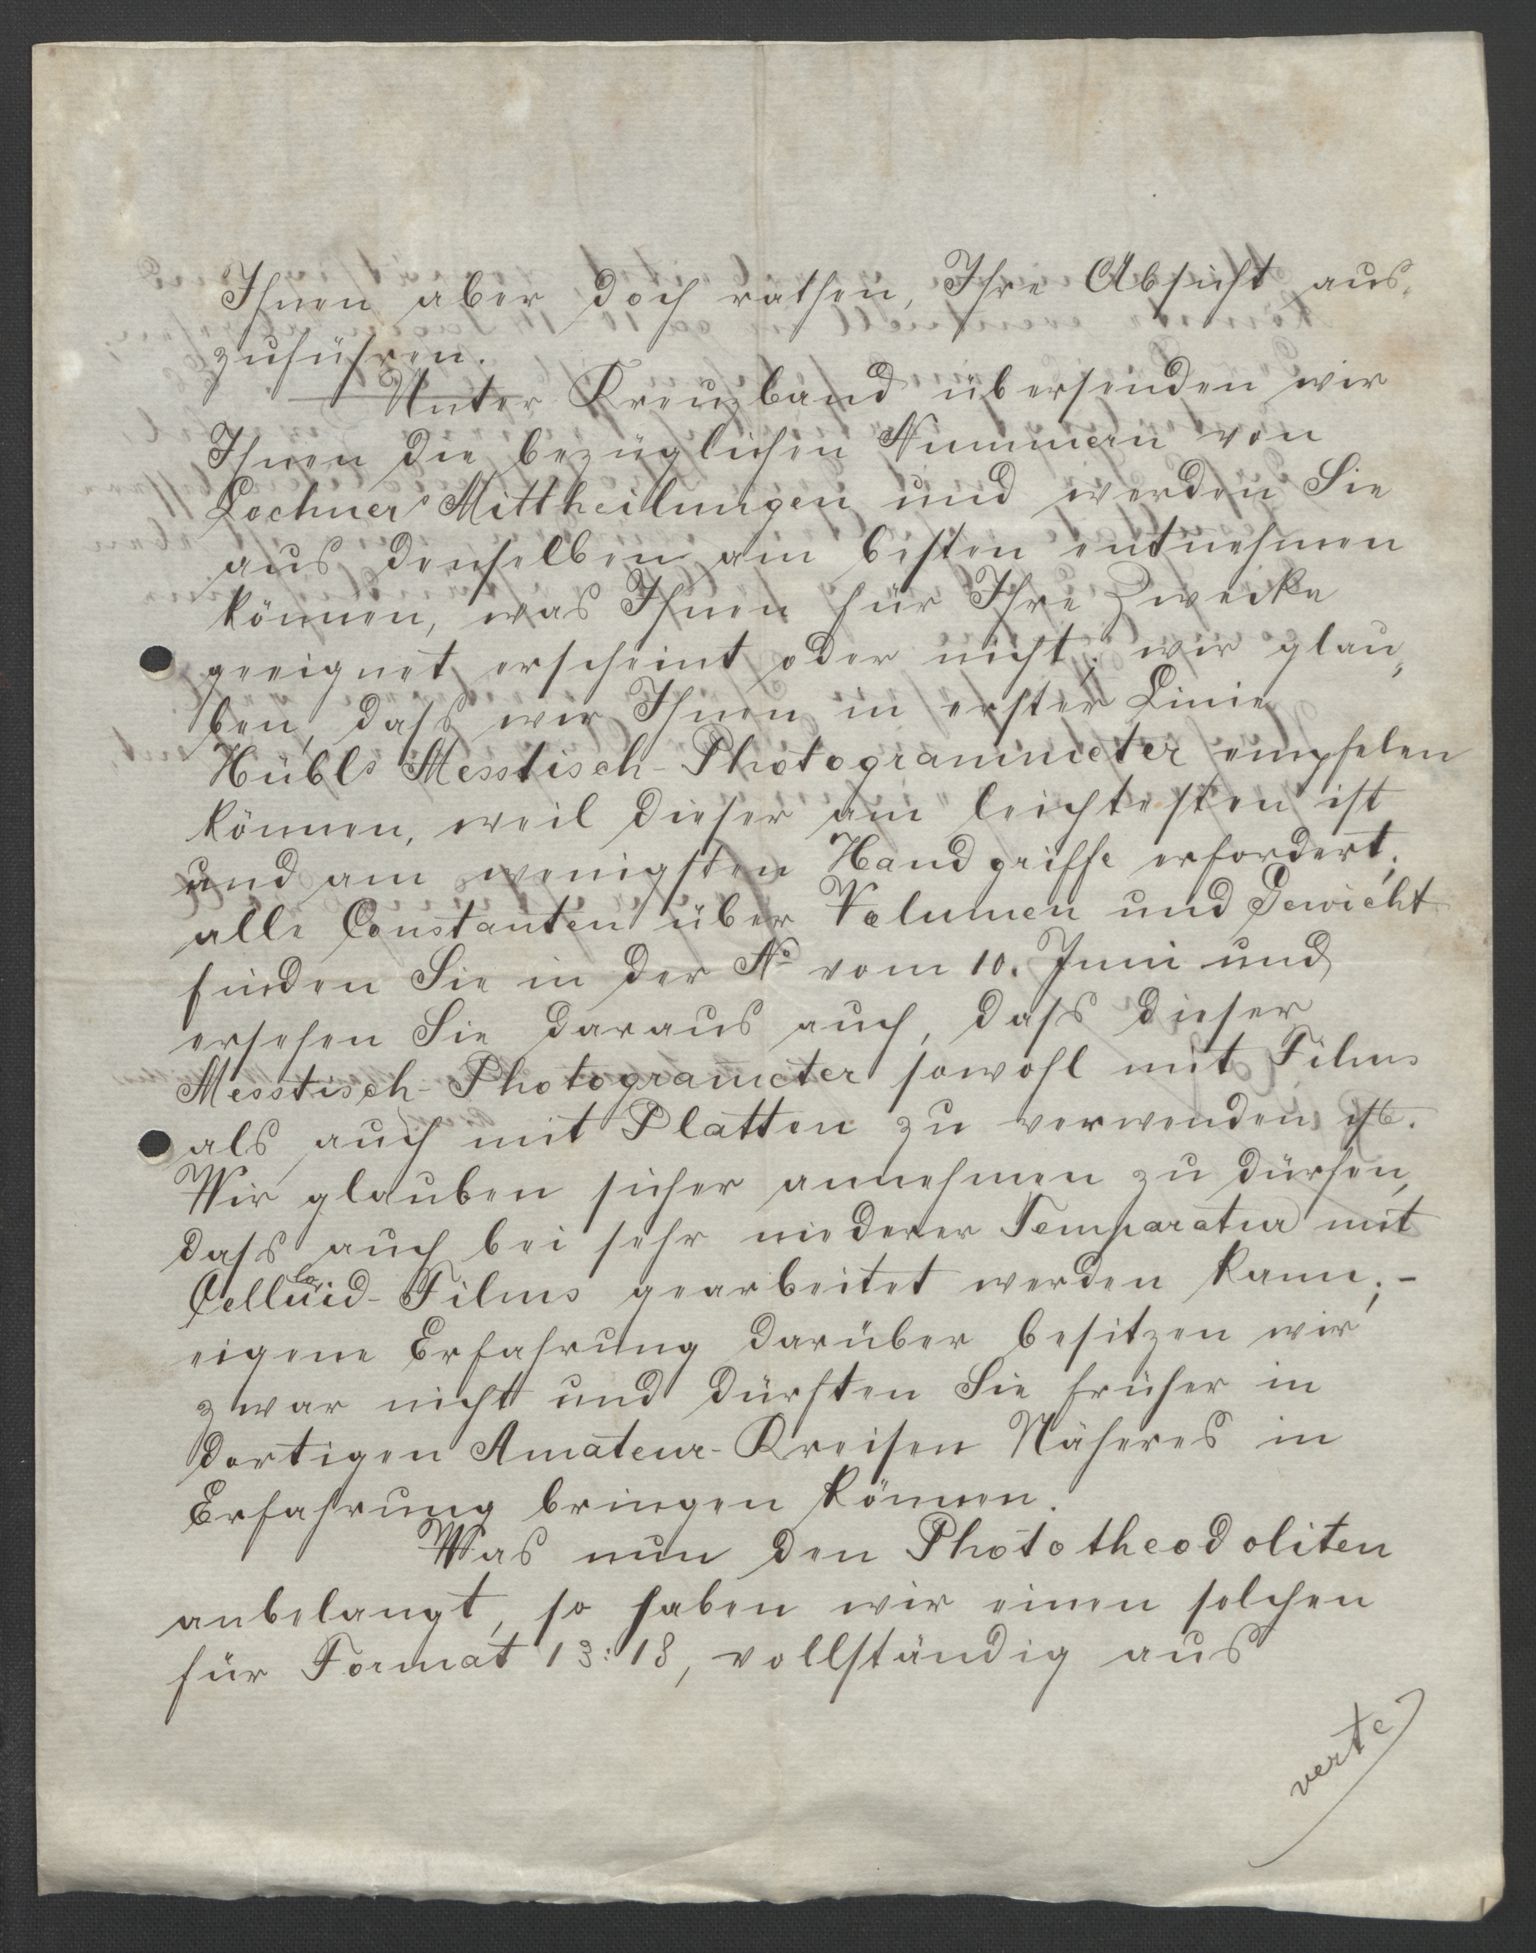 Ihnen aber doch rathen, Ihre Absicht aus-
zuführen.
Unter Kreuzband übersenden wir
Ihnen die bezüglichen Nummern von
Lechners Mittheilungen und werden Sie
aus denselben am besten entnehmen
können, was Ihnen für Ihre Zwecke
geeignet erscheint oder nicht; wir glau-
ben, dass wir Ihnen in erster Linie
Hübls Messtisch-Photogrammeter empfelen
können, weil dieser am leichtesten ist
und am wenigsten Handgriffe erfordert;
alle Constanten über Volumen und Gewicht
finden Sie in der No vom 10. Juni und
ersehen Sie daraus auch, dass dieser
Messtisch-Photogrameter sowohl mit Films
als auch mit Platten zu verwenden ist.
Wir glauben sicher annehmen zu dürfen,
dass auch bei sehr niederer Temparatur mit
Celluloid-Films gearbeitet werden kann; -
eigene Erfahrung darüber besitzen wir
zwar nicht und dürften Sie früher in
dortigen Amateur-Kreisen Näheres in
Erfahrung bringen können.
Was nun den Phototheodoliten
anbelangt, so haben wir einen solchen
für Format 13:18, vollständig aus
verte